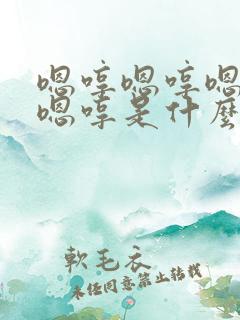 嗯啍嗯啍嗯
嗯啍是什麼
軟毛衣
未經同意禁止轉載